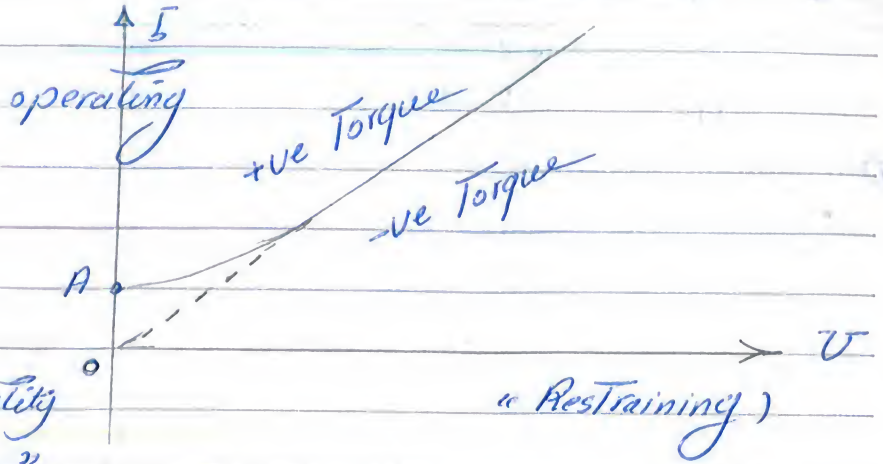 I
operating
+ve Torque
-ve Torque
A
o
V
"Restraining)
"